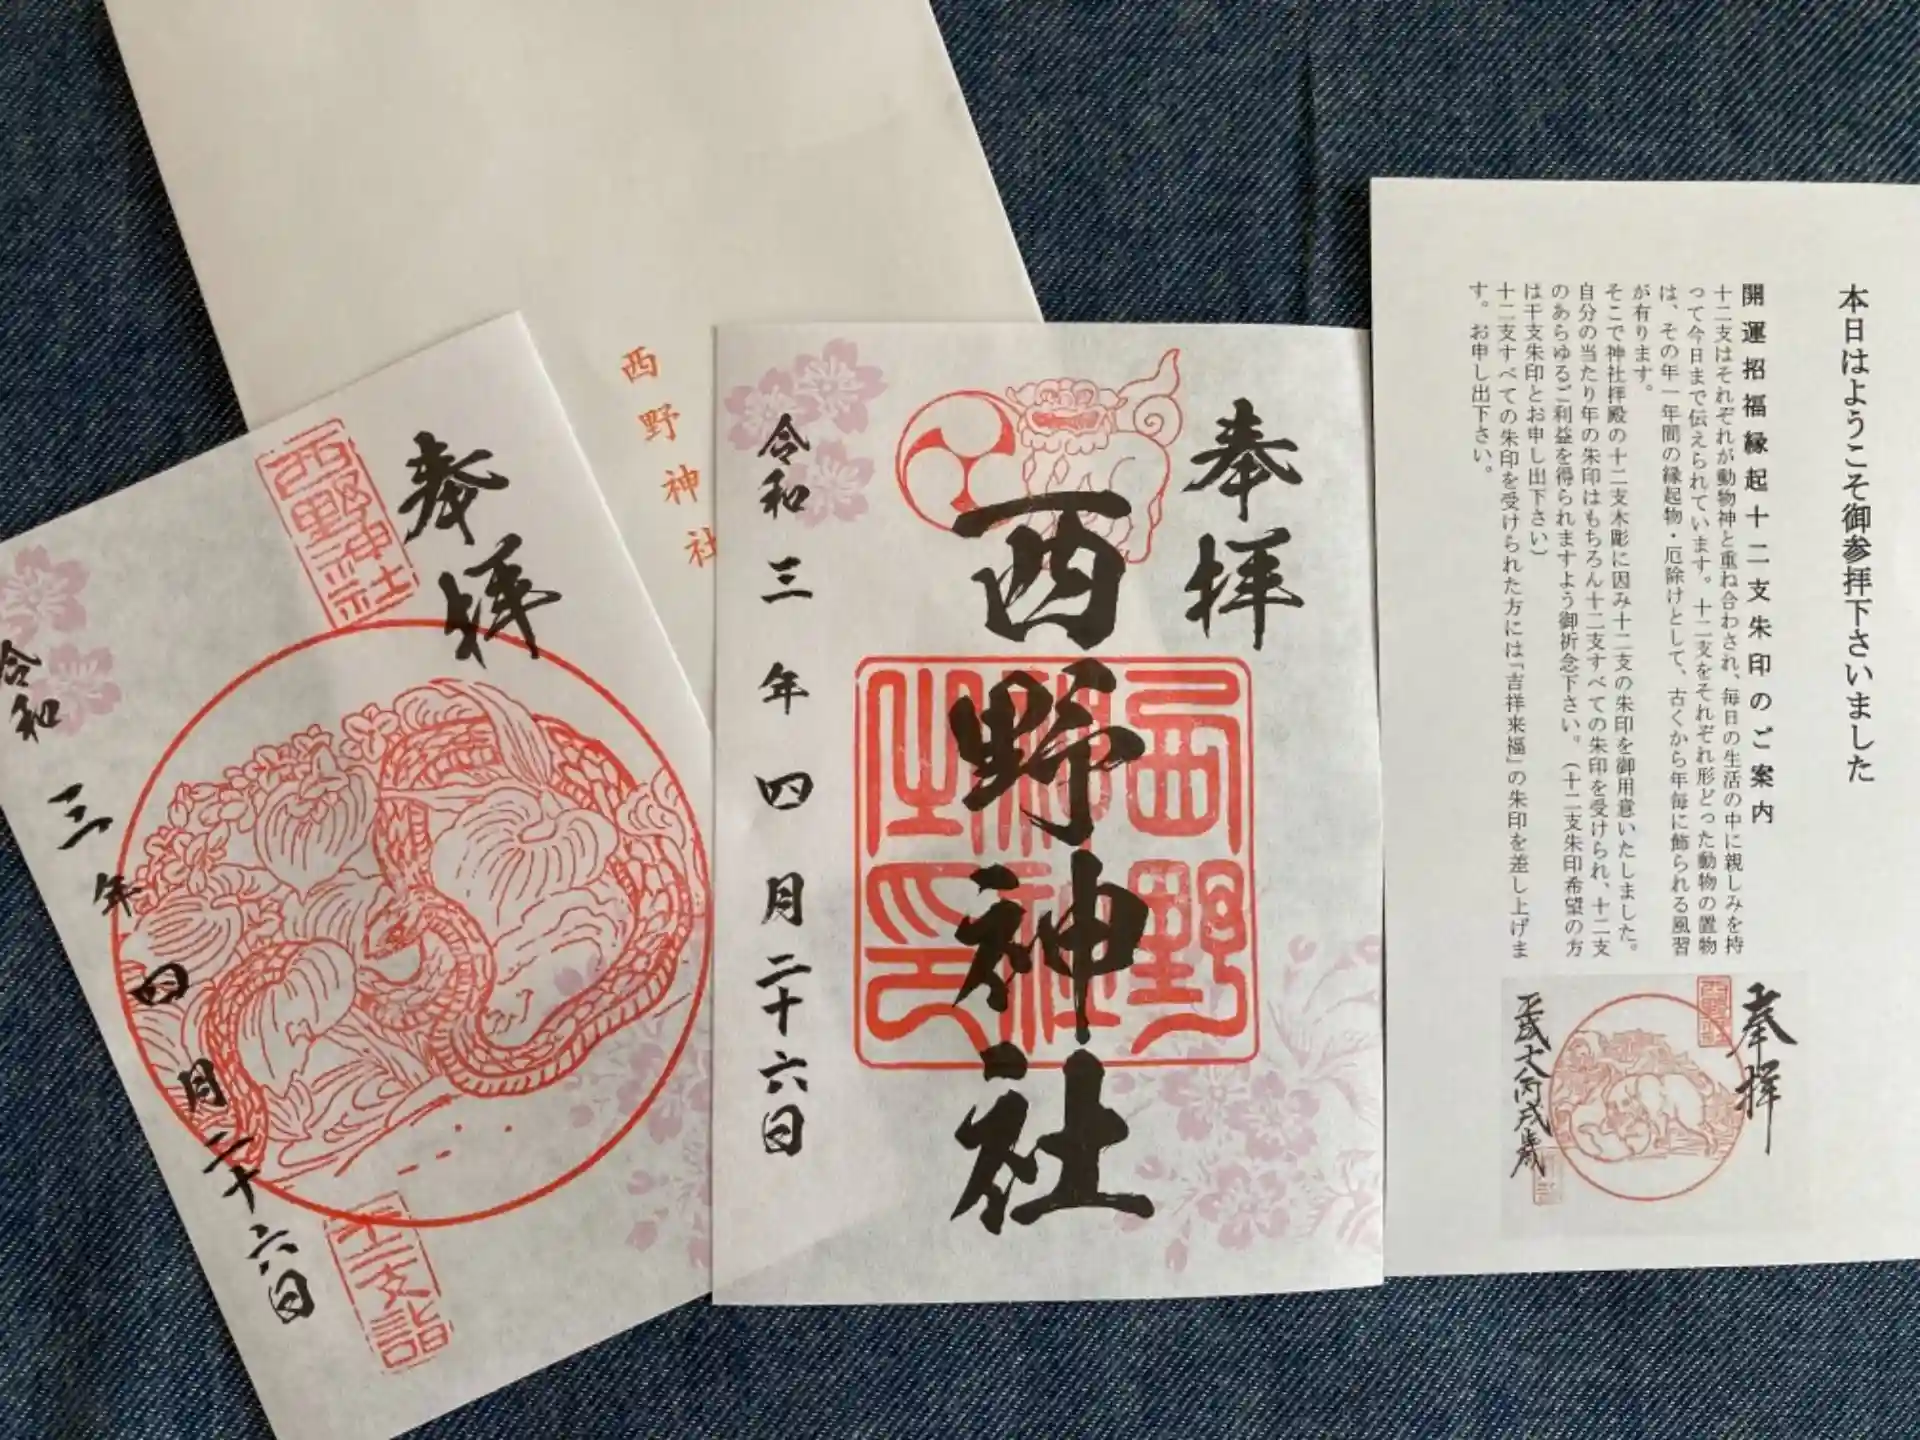 本日はようこそ御参拝下さいました
開運招福縁起十二支朱印のご案内
十二支はそれぞれが動物神と重ね合わされ、毎日の生活の中に親しみを持
って今日まで伝えられています。十二支をそれぞれ形どった動物の置物
は、その年一年間の縁起物・厄除けとして、古くから年毎に飾られる風習
が有ります。
そこで神社拝殿の十二支木彫に因み十二支の朱印を御用意いたしました。
自分の当たり年の朱印はもちろん十二支すべての朱印を受けられ、十二支
のあらゆるご利益を得られますよう御祈念下さい。（十二支朱印希望の方
は干支朱印とお申し出下さい）
十二支すべての朱印を受けられた方には「吉祥来福」の朱印を差し上げま
す。お申し出下さい。
奉拝
西野神社
奉拝
西野神社
西野神社之印
令和三年四月二十六日
西野神社
奉拝
西野神社
十二支詣
令和三年四月二十六日